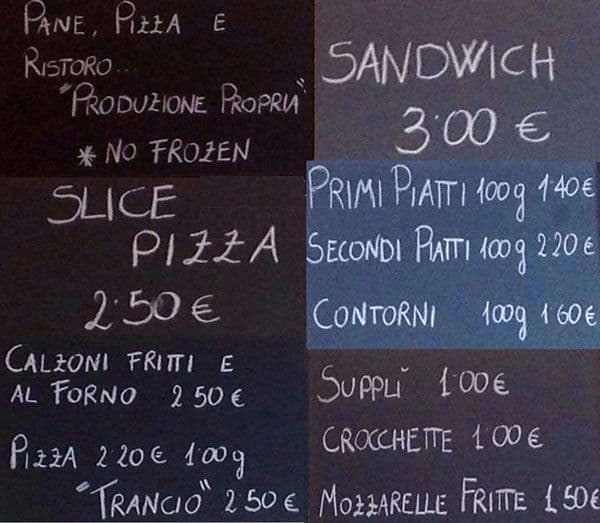 PANE, PIZZA E
RISTORO...
"PRODUZIONE PROPRIA"
* NO FROZEN
SANDWICH
3.00 €
SLICE
PIZZA
2.50 €
PRIMI PIATTI 100g 1.40 €
SECONDI PIATTI 100g 2.20 €
CONTORNI 100g 1.60 €
CALZONI FRITTI E
AL FORNO 2.50 €
PIZZA 2.20 € 1.00g
"TRANCIO" 2.50 €
SUPPLI' 1.00 €
CROCCHETTE 1.00 €
MOZZARELLE FRITTE 1.50 €